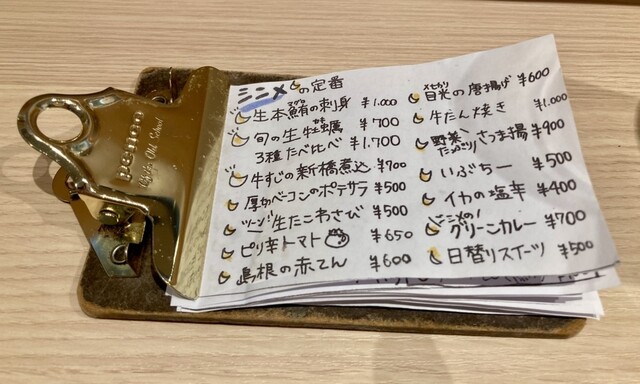 penco
Old School
ミニメの定番
生本鮪の刺身 ¥1.000
マグロ
旬の生牡蠣 ¥700
カキ
3種たべ比べ ¥1.700
牛すじの新橋煮込 ¥700
厚切ベーコンのポテサラ ¥500
ツーン!生たこわさび ¥500
ピリ辛トマト ¥650
島根の赤てん ¥600
メヒカリ
目光の唐揚げ ¥600
牛たん焼き ¥1.000
野菜たっぷりさつま揚 ¥900
いぶちー ¥500
イカの塩辛 ¥400
グリーンカレー ¥700
日替りスイーツ ¥500